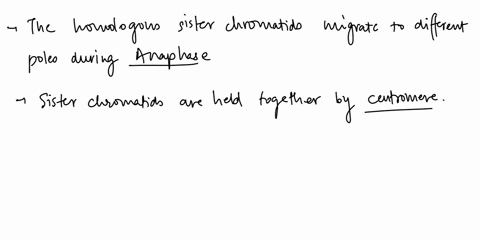 → The homologous sister chromatids migrate to different
poles during Anaphase
→ Sister chromatids are held together by centromere.